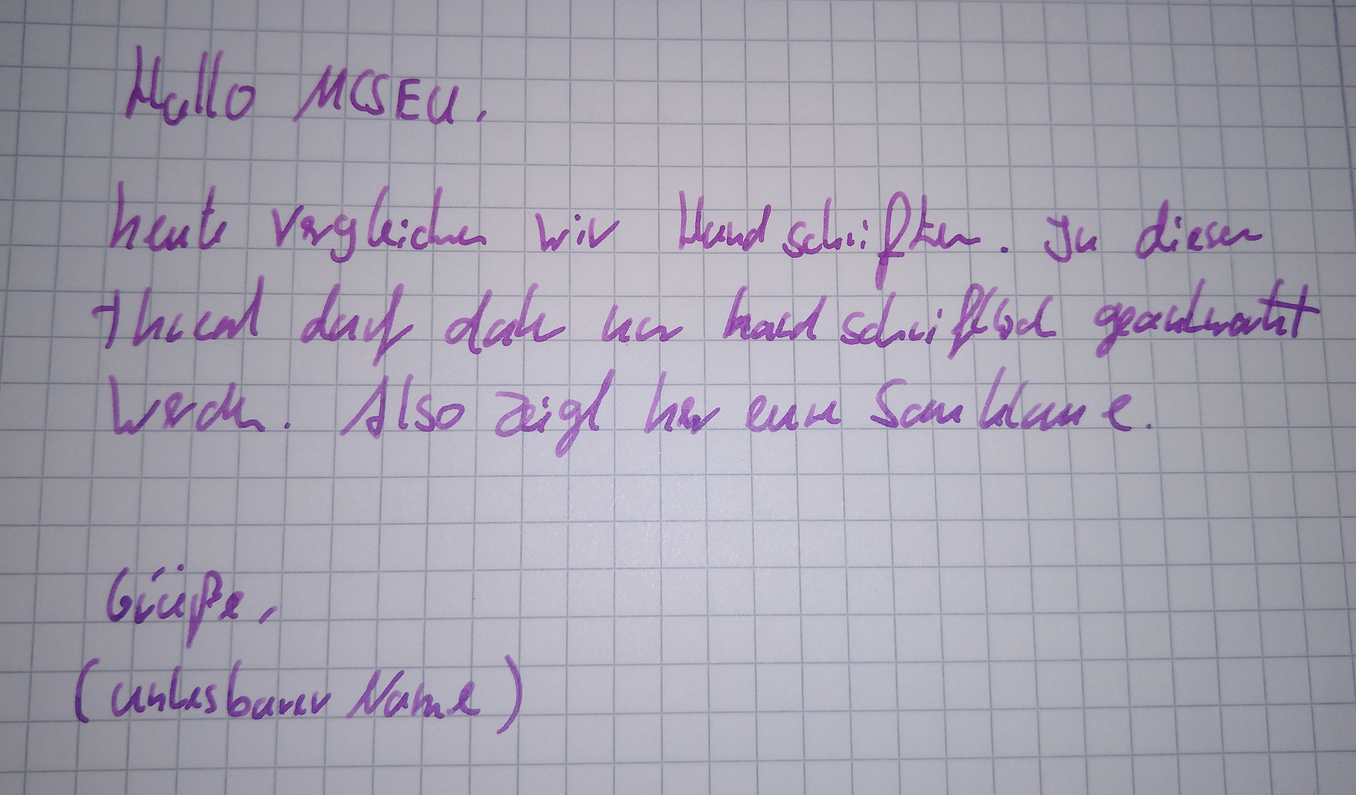 Hallo MCSEU,
heute vergleichen wir Handschriften. In diesen
Thread darf daher nur handschriftlich geantwortet
werden. Also zeigt her eure Sauklaue.
Grüße,
(unlesbarer Name)